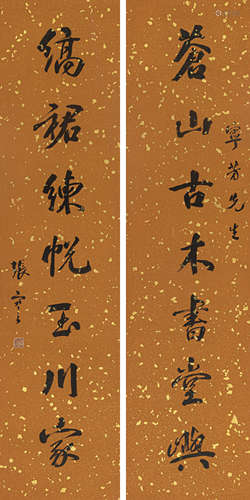 寧芳先生
蒼山古木書堂
縞裙練帨玉川家
張